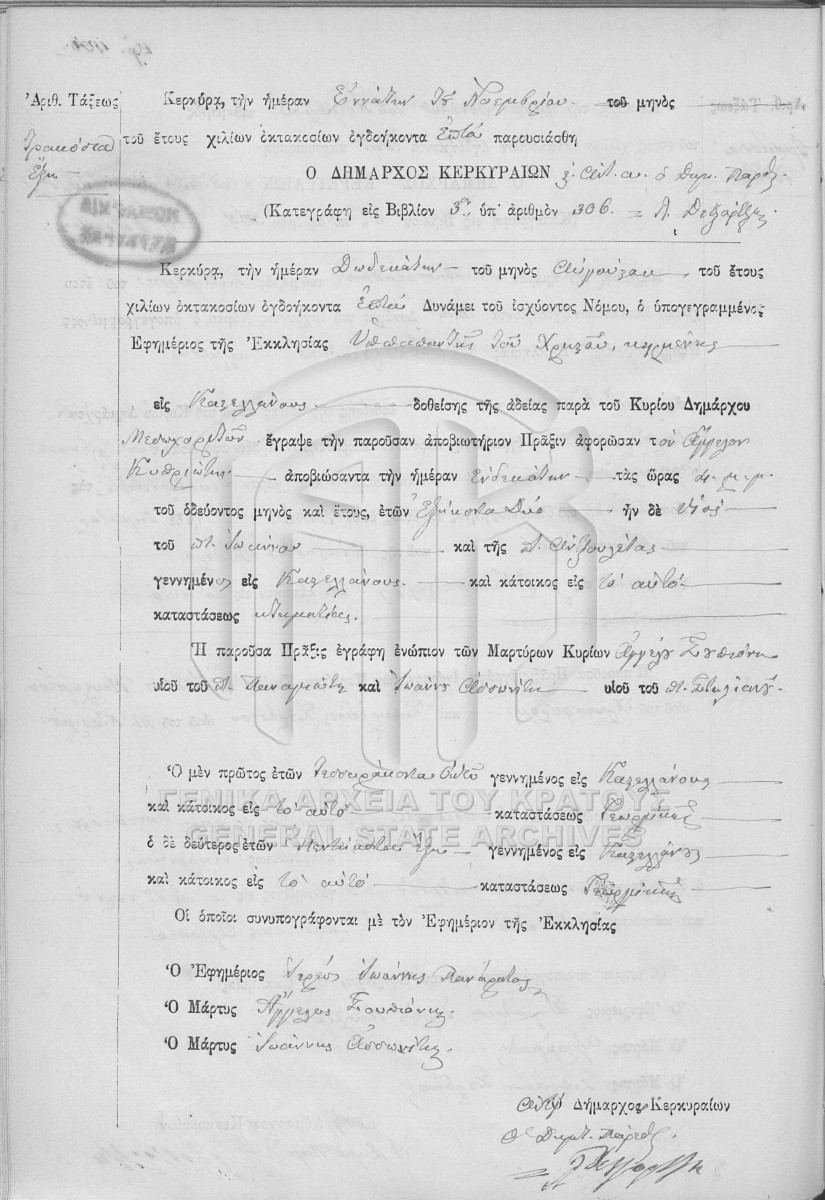 Ἀριθ. Τάξεως
Τριακόσια
ἕξη
Κερκύρᾳ, τὴν ἡμέραν Ἐννάτην τοῦ Νοεμβρίου τοῦ μηνὸς
τοῦ ἔτους χιλίων ὀκτακοσίων ὀγδοήκοντα ἑπτά παρουσιάσθη
Ο ΔΗΜΑΡΧΟΣ ΚΕΡΚΥΡΑΙΩΝ ὁ Δημ. Πάρεδ.
(Κατεγράφη εἰς Βιβλίον 3ον ὑπ' ἀριθμὸν 306
Κερκύρᾳ, τὴν ἡμέραν Δωδεκάτην τοῦ μηνὸς Αὐγούστου τοῦ ἔτους
χιλίων ὀκτακοσίων ὀγδοήκοντα ἑπτά Δυνάμει τοῦ ἰσχύοντος Νόμου, ὁ ὑπογεγραμμένος
Ἐφημέριος τῆς Ἐκκλησίας Ὑπαπαντῆς τοῦ Χριστοῦ, κειμένης
εἰς Καστελλάνους δοθείσης τῆς ἀδείας παρὰ τοῦ Κυρίου Δημάρχου
Μεσοχωριτῶν ἔγραψε τὴν παροῦσαν ἀποβιωτήριον Πρᾶξιν ἀφορῶσαν τὸν Ἄγγελον
Κυπριώτην ἀποβιώσαντα τὴν ἡμέραν Ἑνδεκάτην τὰς ὥρας μ.μ.
τοῦ ὁδεύοντος μηνὸς καὶ ἔτους, ἐτῶν Ἑξήκοντα Δύο ἦν δὲ υἱὸς
τοῦ π. Ἰωάννου καὶ τῆς π. Ἀντζουλέτας
γεννημένος εἰς Καστελλάνους καὶ κάτοικος εἰς τὸ αὐτὸ
καταστάσεως κτηματίας.
Ἡ παροῦσα Πρᾶξις ἐγράφη ἐνώπιον τῶν Μαρτύρων Κυρίων Ἀγγέλου Σουπιόνη
υἱοῦ τοῦ π. Παναγιώτη καὶ Ἰωάννου Ἀσωνίτη υἱοῦ τοῦ π. Στηλιανοῦ
Ὁ μὲν πρῶτος ἐτῶν Τεσσαράκοντα Ὀκτὼ γεννημένος εἰς Καστελλάνους
καὶ κάτοικος εἰς τὸ αὐτὸ καταστάσεως Γεωργικῆς
ὁ δὲ δεύτερος ἐτῶν Πεντήκοντα Ἕξη γεννημένος εἰς Καστελλάνους
καὶ κάτοικος εἰς τὸ αὐτὸ καταστάσεως Γεωργικῆς
Οἱ ὁποῖοι συνυπογράφονται μὲ τὸν Ἐφημέριον τῆς Ἐκκλησίας
Ὁ Ἐφημέριος Ἱερεὺς Ἰωάννης Πανάρετος
Ὁ Μάρτυς Ἄγγελος Σουπιόνης
Ὁ Μάρτυς Ἰωάννης Ἀσωνίτης
Δήμαρχος Κερκυραίων
Ὁ Δημτ. Πάρεδ.
ΓΕΝΙΚΑ ΑΡΧΕΙΑ ΤΟΥ ΚΡΑΤΟΥΣ
GENERAL STATE ARCHIVES